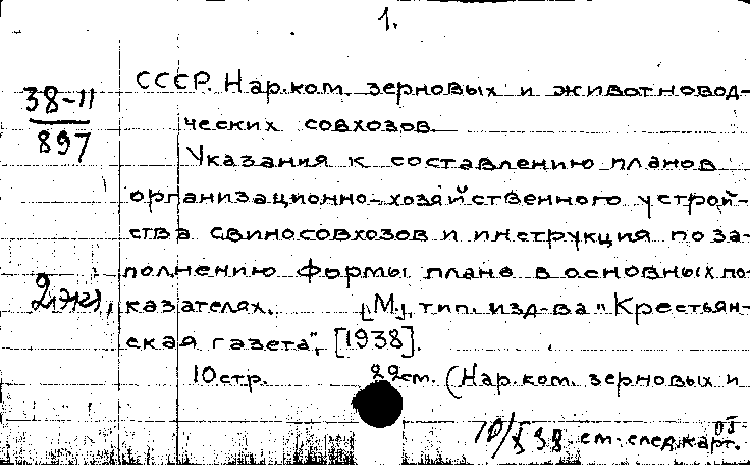 1.
38-11
897
СССР. Нар.ком. зерновых и животновод-
ческих совхозов.
Указания к составлению планов
организационно-хозяйственного устрой-
ства свиносовхозов и инструкция по за-
полнению формы плана в основных по-
2 экз, казателях. [М.], тип. изд-ва "Крестьян-
ская газета", [1938].
10 стр. 22 см. (Нар.ком. зерновых и
10/X 38. см. след. карт.